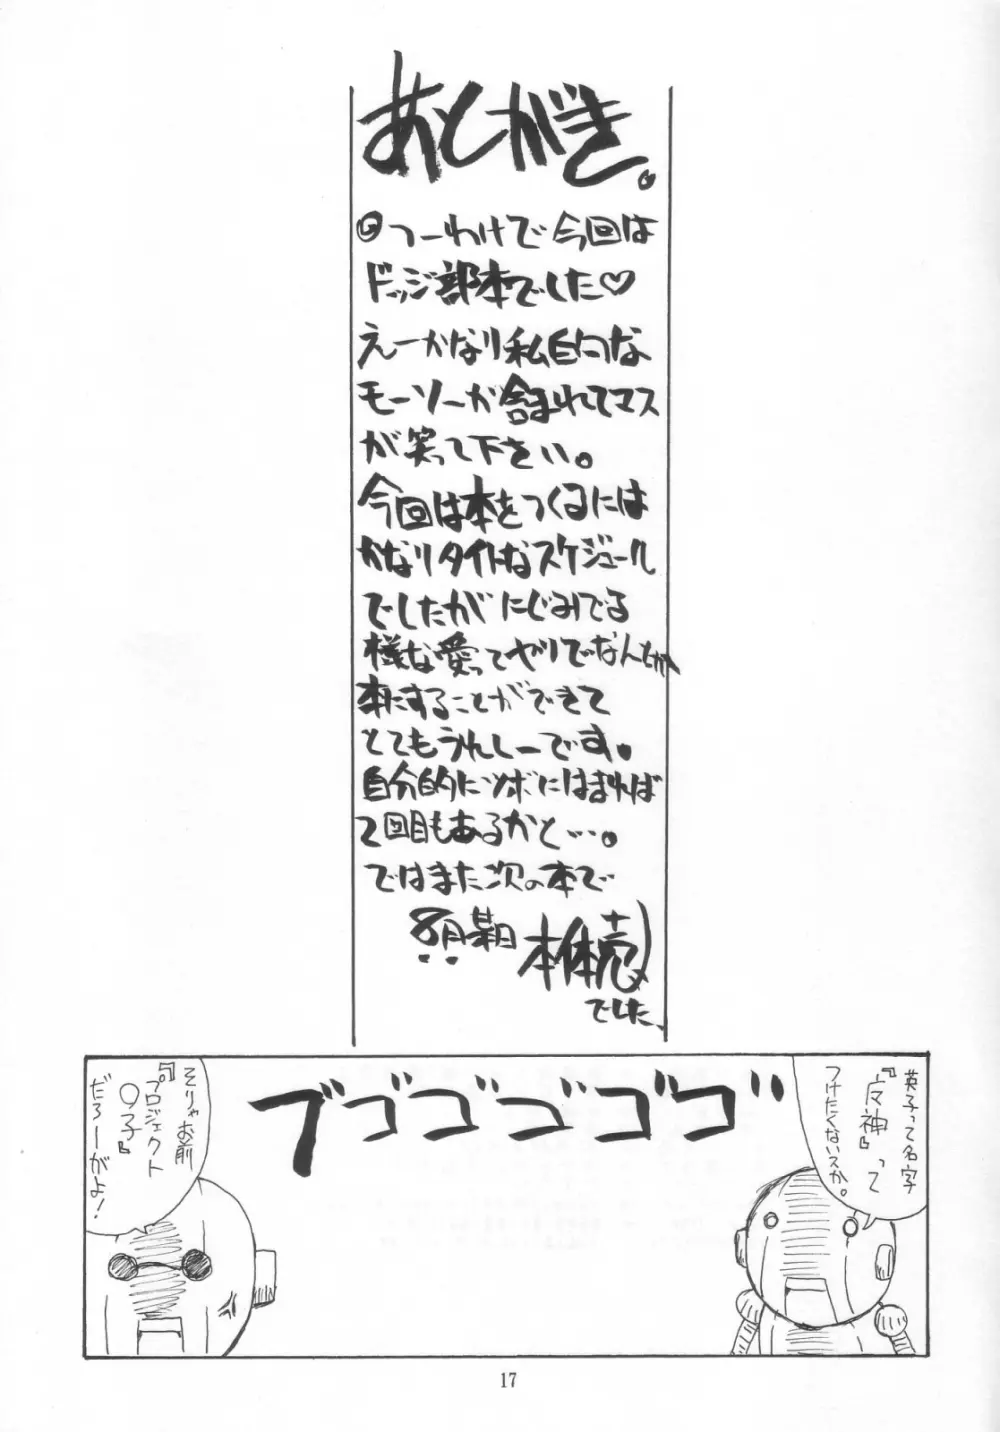 あとがき。
つーわけで今回は
ドッジ部本でした♡
えーかなり私的な
モーソーが含まれてマス
が笑って下さい。
今回は本をつくるには
かなりタイトなスケジュール
でしたがにじみでる
様な愛ってヤリでなんとか
本にすることができて
とてもうれしーです。
自分的にツボにはまれば
2回目もあるかと…。
ではまた次の本で
8月某日 本体売
でした
英子って名字
『反神』って
つけたくないスか。
ブゴゴゴゴゴ
そりゃお前
『プロジェクト
○子』
だろーがよ!
17